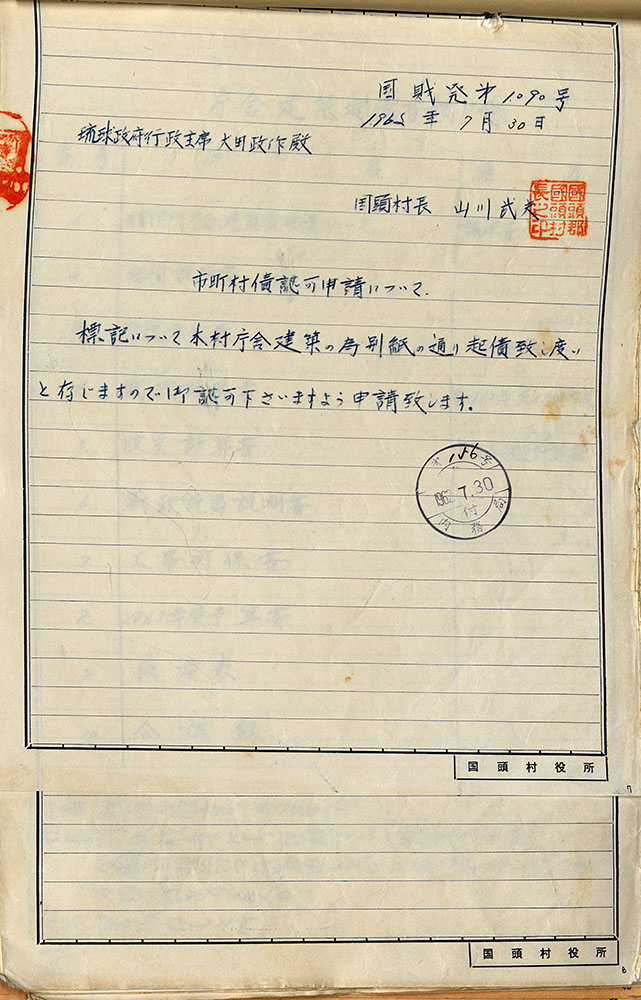 国財発第1090号
1962年7月30日
琉球政府行政主席 大田政作殿
国頭村長 山川武夫
國頭郡
國頭村
長之印
市町村債認可申請について.
標記について本村庁舎建築の為別紙の通り起債致し度い
と存じますので御認可下さいますよう申請致します.
第156号
1962 7.30
付
内務局
国頭村役所
7
国頭村役所
8